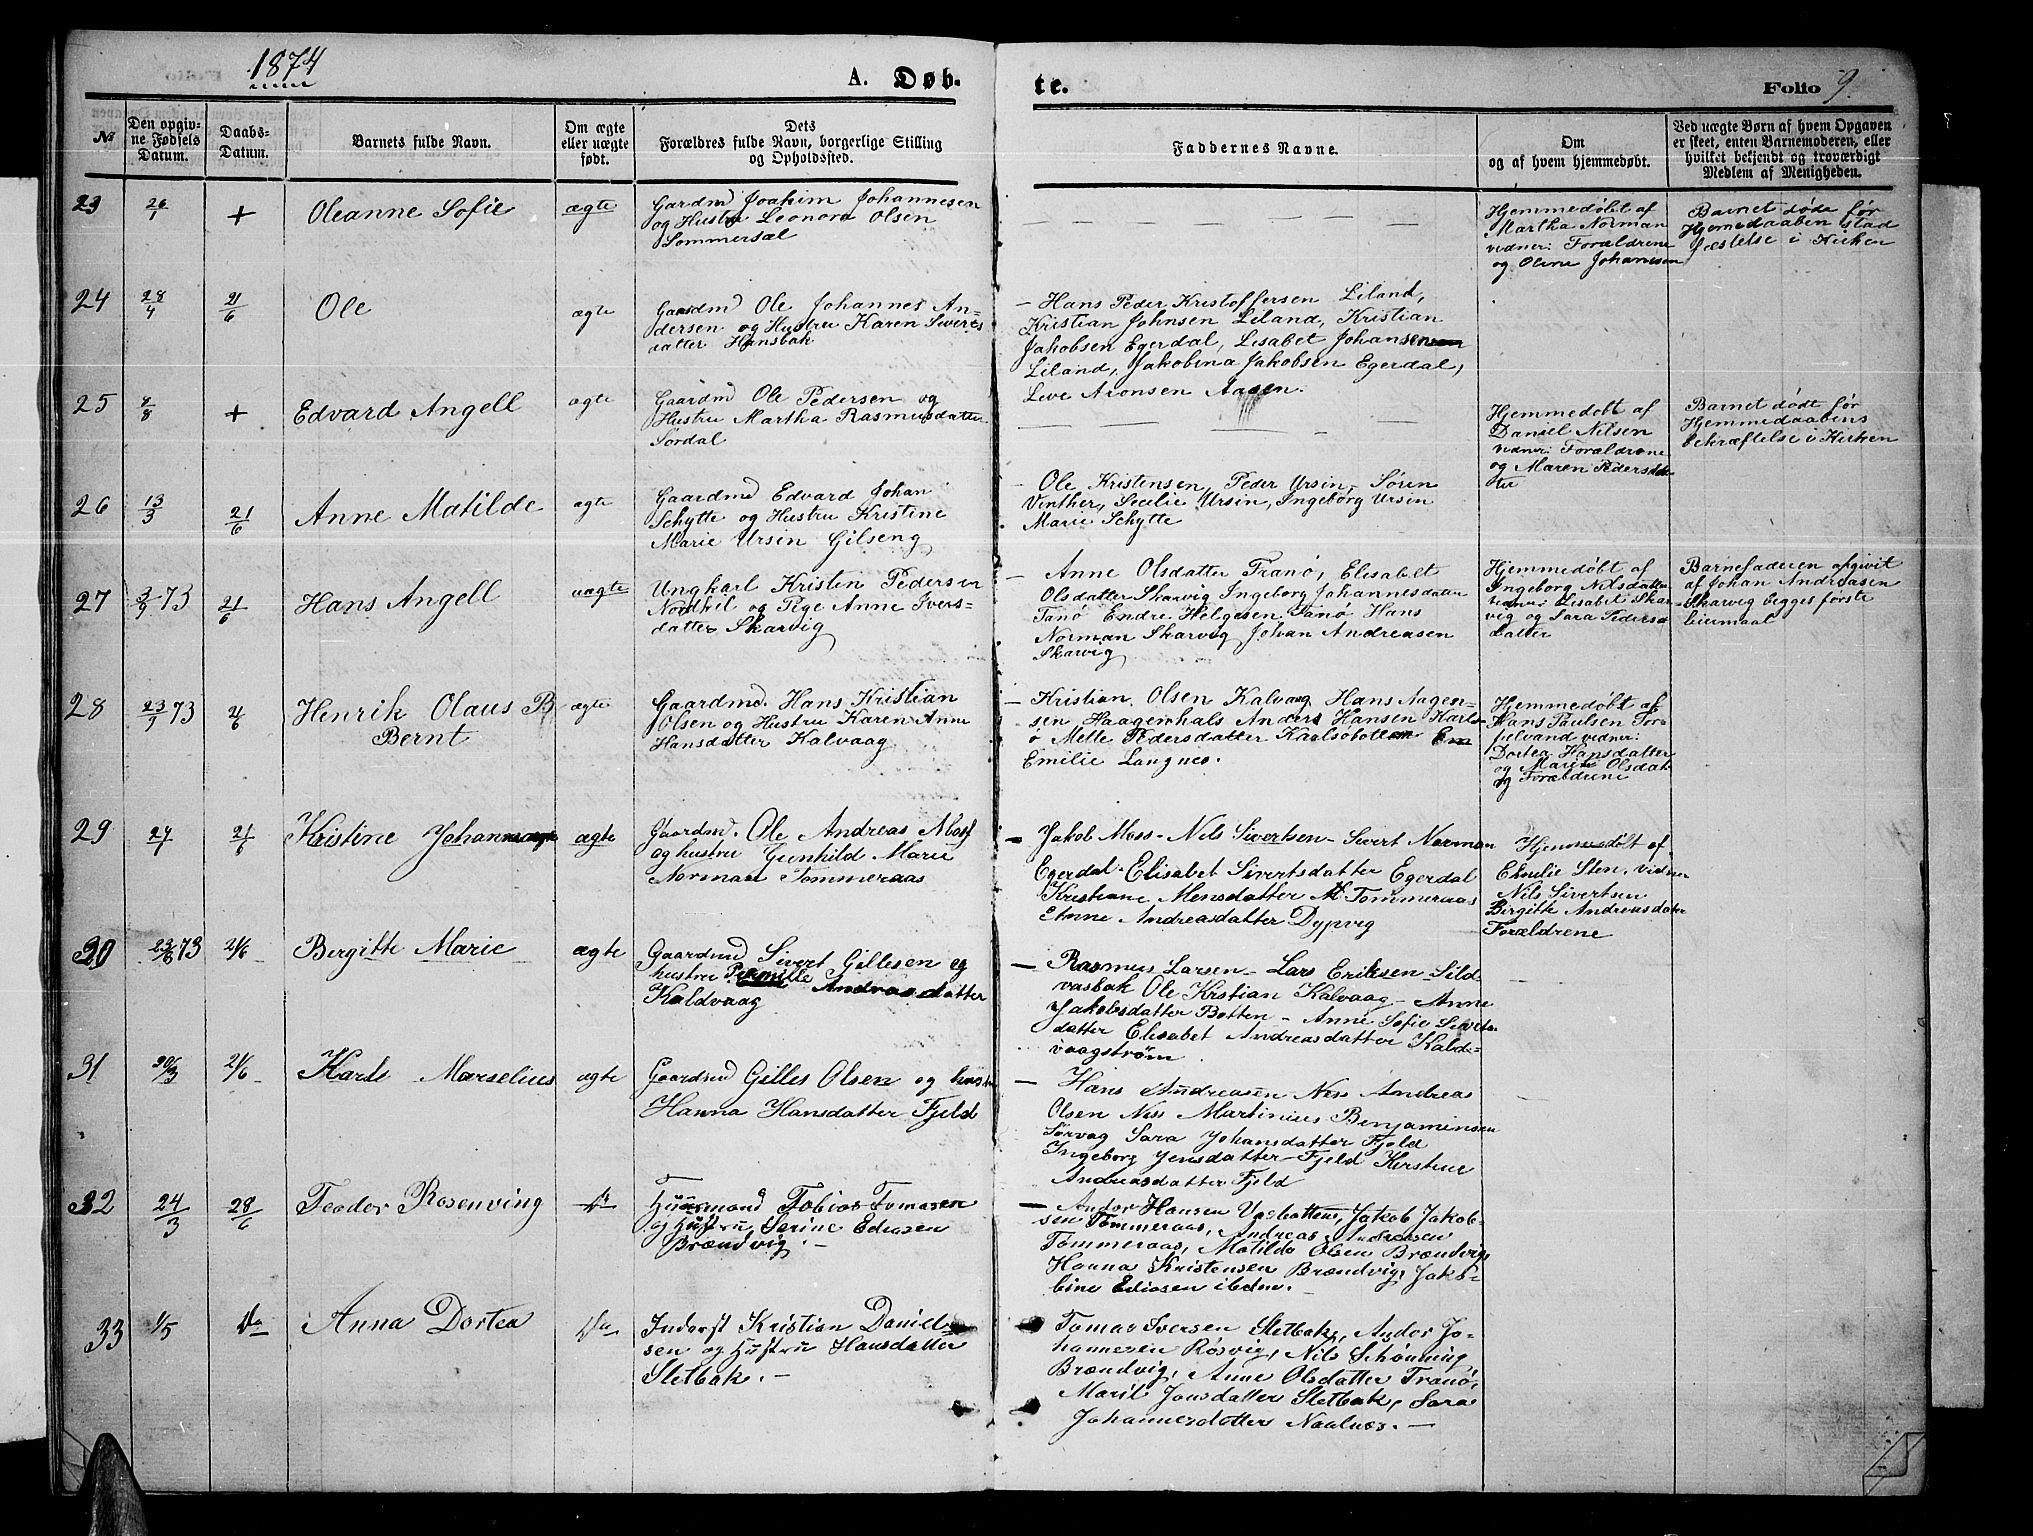 1874
A. Døb-
te.
Folio 9.
№
Den opgiv-
ne Fødsels
Datum.
Daabs-
Datum.
Barnets fulde Navn.
Om ægte
eller uægte
født.
Dets
Forældres fulde Navn, borgerlige Stilling
og Opholdssted.
Faddernes Navne.
Om
og af hvem hjemmedøbt.
Ved uægte Børn af hvem Opgaven
er skeet, enten Barnemoderen, eller
hvilket bekjendt og troværdigt
Medlem af Menigheden.
23
26/1
+
Oleanne Sofie
ægte
Gardmd Joakim Johannesen
og Hustru Leonora Olsen
Sommersæl
Hjemmedøbt af
Martha Norman
vidner: Forældrene
og Oline Johannesen
Barnet døde før
Hjemedaaben stad
fæstelse i Kirken
24
28/4
21/6
Ole
ægte
Gaardmd Ole Johannes An-
dersen og Hustru Karen Siverts
datter Hansbak
- Hans Peder Kristoffersen Liland,
Kristian Johnsen Liland, Kristian
Jakobsen Egerdal, Lisabet Johansen
Liland, Jakobina Jakobsen Egerdal,
Leve Aronsen Aasen.
25
4/8
+
Edvard Angell
ægte
Gaardmd Ole Pedersen og
Hustru Martha Rasmusdatter
Sørdal
Hjemmedøbt af
Daniel Nilsen
vidner: Forældrene
og Maren Pedersda
tter
Barnet dødt før
Hjemmedaabens
bekræftelse i Kirken
26
13/3
21/6
Anne Matilde
ægte
Gaardmd Edvard Johan
Schytte og Hustru Kristine
Marie Ursin Gilseng
- Ole Kristensen, Peder Ursin, Søren
Vinther, Secilie Ursin, Ingeborg Ursin
Marie Schytte
27
3/9 73
21/6
Hans Angell
uægte
Ungkarl Kristen Pedersen
Nordkil og Pige Anne Ivers-
datter Skarvig
- Anne Olsdatter Tranø, Elisabet
Olsdatter Skarvig Ingeborg Johannesdatter
Tanø Endre Helgesen Tanø Hans
Norman Skarvig Johan Andreasen
Skarvig
Hjemmedøbt af
Ingeborg Nilsdatter
vidner: Lisabet Skar
vig og Sara Pedersd
datter
Barnefaderen opgivit
af Johan Andreasen
Skarvig begges første
leiermaal
28
23/9 73
21/6
Henrik Olaus B
Bernt
ægte
Gaardmd. Hans Kristian
Olsen og Hustru Karen Anne
Hansdatter Kalvaag
- Kristian Olsen Kalvaag Hans Aagen-
sen Haagenhals Anders Hansen Karls-
ø Mette Pedersdatter Karlsøbotten
Emilie Langnes.
Hjemmedøbt af
Hans Paulsen For-
selvand vidner:
Dortea Hansdatter
og Marie Olsdat
og Forældrene
29
27/1
21/6
Kristine Johanna
ægte
Gaardmd. Ole Andreas Moss
og hustru Gunhild Marie
Norman Tommeraas
- Jakob Moss - Nils Sivertsen - Sivert Norman
Egerdal. Elisabet Sivertsdatter Egerdal
Kristiane Mensdatter Tommeraas
Anne Andreasdatter Dypvig
Hjemmedøbt af
Emilie Sten, vidner
Nils Sivertsen
Birgitte Andreasdatter
Forældrene
30
23/8 73
21/6
Bergitte Marie
ægte
Gaardmd Sivert Gillesen og
hustru Pernille Andreasdatter
Kaldvaag
- Rasmus Larsen - Lars Eriksen Sild
vasbak Ole Kristian Kalvaag - Anne
Jakobsdatter Botten - Anne Sofie Siverts
datter Elisabet Andreasdatter Kald-
vaagstrøm
31
20/3
21/6
Karl Marselius
ægte
Gaardmd Gilles Olsen og hustru
Hanna Hansdatter Fjeld
- Hans Andreasen Ness Andreas
Olsen Ness Martinius Benjaminsen
Sørvag Sara Johansdatter Fjeld
Ingeborg Jensdatter Fjeld Kerstine
Andreasdatter Fjeld
32
24/3
28/6
Teodor Rosenving
Huusmand Tobias Tomasen
og Hustru, Serine Ediasen
Brændvig. -
- Andor Hansen Vasbotten, Jakob Jakob-
sen Tømmeraas, Andreas Andresen
Tømmeraas, Matilda Olsen Brændvig,
Hanna Kristensen Brændvig, Jako-
bine Ediasen ibdm.
33
1/5
Do
Anna Dortea
Do
Inderst Kristian Daniel-
sen og Hustru Hansdatter
Sletbak. -
Tomas Iversen Sletbak, Andor Jo-
hannesen Røsvig, Nils Schønning
Brændvig, Anne Olsdatter Tranø,
Maril Jonsdatter Sletbak, Sara
Johannesdatter Naalnæs. -